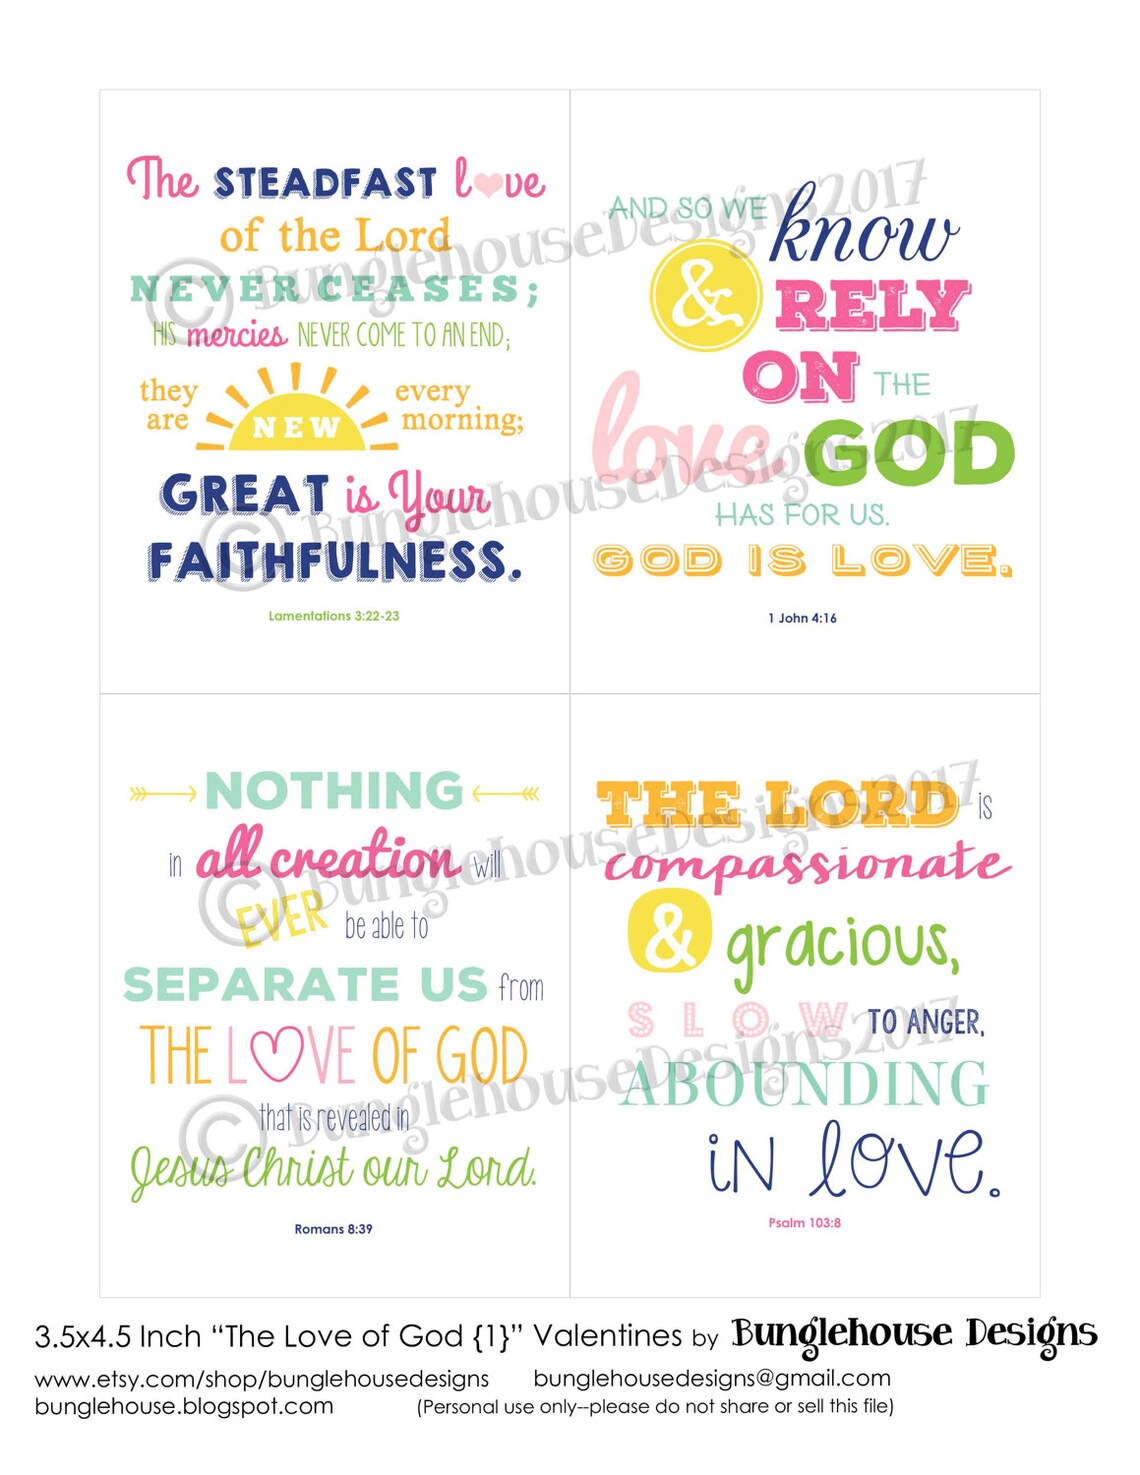 The STEADFAST love
of the Lord
NEVER CEASES;
HIS mercies NEVER COME TO AN END;
they are NEW every morning;
GREAT is Your
FAITHFULNESS.
Lamentations 3:22-23
© BunglehouseDesigns2017
© BunglehouseDesigns2017
AND SO WE know
& RELY
ON THE
love GOD
HAS FOR US.
GOD IS LOVE.
1 John 4:16
NOTHING
in all creation will
EVER be able to
SEPARATE US from
THE LOVE OF GOD
that is revealed in
Jesus Christ our Lord.
Romans 8:39
© BunglehouseDesigns2017
© BunglehouseDesigns2017
THE LORD is
compassionate
& gracious,
SLOW TO ANGER,
ABOUNDING
in love.
Psalm 103:8
3.5x4.5 Inch “The Love of God {1}” Valentines by Bunglehouse Designs
www.etsy.com/shop/bunglehousedesigns bunglehousedesigns@gmail.com
bunglehouse.blogspot.com (Personal use only--please do not share or sell this file)